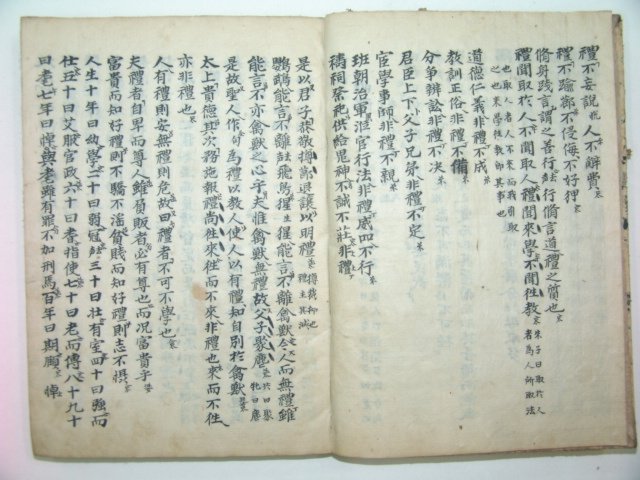 禮不妄說人不辭費
禮不踰節不侵侮不好狎
脩身踐言謂之善行行脩言道禮之質也
禮聞取於人不聞取人禮聞來學不聞往教 朱子曰取於人者爲人所取法
也取人者人不來而我引取之也來學往教卽其事也
道德仁義非禮不成
教訓正俗非禮不備
分爭辨訟非禮不决
君臣上下父子兄弟非禮不定
宦學事師非禮不親
班朝治軍涖官行法非禮威四不行
禱祠祭祀供給鬼神非禮不誠不莊
是以君子恭敬撙節退讓以明禮
鸚鵡能言不離飛鳥猩猩能言不離禽獸今人而無禮雖
能言不亦禽獸之心乎夫惟禽獸無禮故父子聚麀
是故聖人作爲禮以教人使人以有禮知自別於禽獸
太上貴德其次務施報禮尚往來往而不來非禮也來而不往
亦非禮也
人有禮則安無禮則危故曰禮者不可不學也
夫禮者自卑而尊人雖負販者必有尊也而况富貴乎
富貴而知好禮則不驕不淫貧賤而知好禮則志不懾
人生十年曰幼學二十曰弱冠三十曰壯有室四十曰强而
仕五十曰艾服官政六十曰耆指使七十曰老而傳八十九十
曰耄七年曰悼與耄雖有罪不加刑焉百年曰期頤 悼